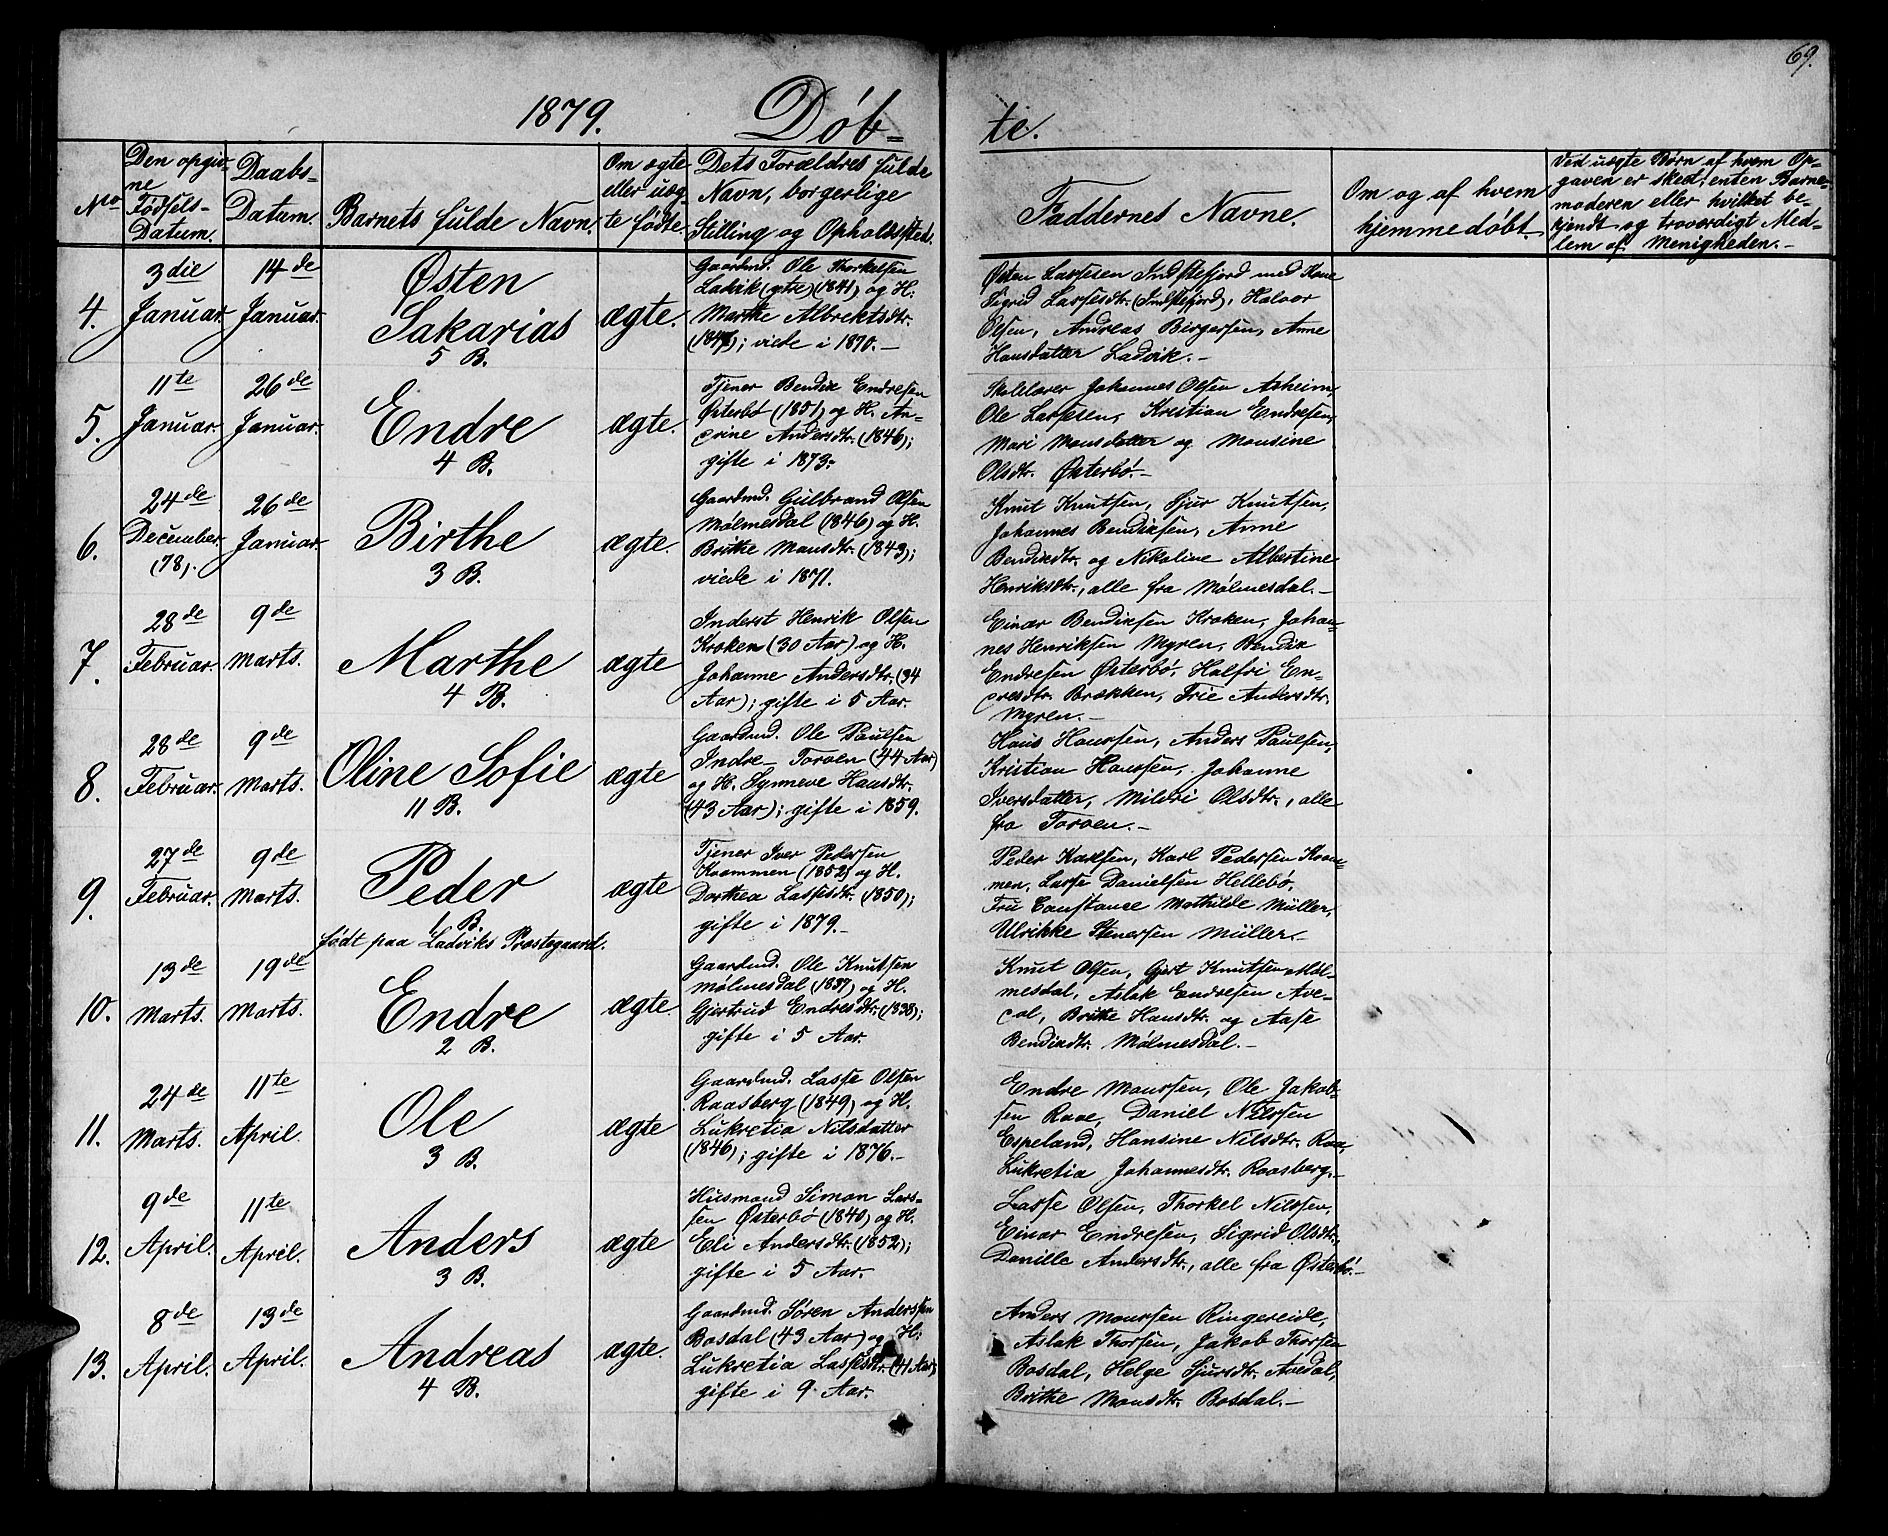 69.
1879. Døb-
te.
No
Den opgiv-
ne
Fødsels-
Datum.
Daabs-
Datum.
Barnets fulde Navn.
Om ægte
eller uæg
te fødte
Dets Forældres fulde
Navn, borgerlige
Stilling og Opholdssted.
Faddernes Navne.
Om og af hvem
hjemmedøbt.
Ved uægte Børn af hvem Op-
gaven er skeet, enten Barne-
moderen eller hvilket be-
kjendt og troværdigt Med-
lem af Menigheden.-
4.
3die
Januar.
14de
Januar.
Østen
Sakarias
5 B.
ægte.
Gaardmd. Ole Thorkelsen
Ladvik (ytre) (1841) og H:
Marthe Albrektsdtr.
viede i 1870.-
Østen Lassesen Indstefjord med Kone
Sigrid Lassesdtr. (Indstefjord), Halvor
Olsen, Andreas Birgersen, Anne
Hansdatter Ladvik.-
5.
11te
Januar.
26de
Januar.
Endre
4 B.
ægte.
Tjener Bendix Endresen
Østerbø (1851) og H. An-
drine Andersdtr. (1846);
gifte i 1873.
Skolelærer Johannes Olsen Asheim,
Ole Lassesen, Kristian Endresen,
Mari Monsdatter og Monsine
Olsdtr. Østerbø.-
6.
24de
December
(78).
26de
Januar.
Birthe
3 B.
ægte.
Gaardmd. Gulbrand Olsen
Mølmesdal (1846) og H.
Brithe Monsdtr. (1843);
viede i 1871.
Knut Knutsen, Sjur Knutsen,
Johannes Bendixsen, Anne
Bendixdtr. og Nikoline Albertine
Henriksdtr., alle fra Mølmesdal.-
7.
28de
Februar.
9de
Marts.
Marthe
4 B.
ægte
Inderst Henrik Olsen
Kroken (30 Aar) og H.
Johanne Andersdtr. (34
Aar); gifte i 5 Aar.
Einar Bendixsen Kroken, Johan-
nes Henriksen Myren, Bendix
Endresen Østerbø, Halfri En-
dresdtr. Brækken, Frie Andersdtr.
Myren.-
8.
28de
Februar.
9de
Marts.
Oline Sofie
11 B.
ægte
Gaardmd. Ole Paulsen
Indre- Torven (44 Aar)
og H. Synneve Hansdtr.
(43 Aar); gifte i 1859.
Hans Hanssen, Anders Paulsen,
Kristian Hanssen, Johanne
Iversdatter, Mildri Olsdtr., alle
fra Torven.-
9.
27de
Februar.
9de
Marts.
Peder
1 B.
født paa Ladviks Præstegaard.
ægte
Tjener Iver Pedersen
Kvammen (1852) og H.
Dorthea Lassesdtr. (1850);
gifte i 1879.-
Peder Karlsen, Karl Pedersen Kvam-
men, Lasse Danielsen Hellebø,
Fru Constance Mathilde Müller,
Ulrikke Stenersen Müller.-
10.
13de
Marts.
19de
Marts.
Endre
2 B.
ægte
Gaardmd. Ole Knutsen
Mølmesdal (1837) og H.
Gjertrud Endresdtr. (1838);
gifte i 5 Aar.
Knut Olsen, Gjert Knutsen Møl-
mesdal, Aslak Endresen Ave-
dal, Brithe Hansdtr. og Aase
Bendixdtr. Mølmesdal.-
11.
24de
Marts.
11te
April.
Ole
3 B.
ægte
Gaardmd. Lasse Olsen
Raasberg (1849) og H.
Lukretia Nilsdatter
(1846); gifte i 1876.-
Endre Monssen, Ole Jakob-
sen Raae, Daniel Nilssen
Espeland, Hansine Nilsdtr. Raa,
Lukretia Johannesdtr. Raasberg.-
12.
9de
April.
11te
April.
Anders
3 B.
ægte
Husmand Simon Lars-
sen Østerbø (1840) og H.
Eli Andersdtr. (1852);
gifte i 5 Aar.
Lasse Olsen, Thorkel Nilssen,
Einar Endresen, Sigrid Olsdtr.,
Danille Andersdtr., alle fra Østerbø.-
13.
8de
April.
13de
April.
Andreas
4 B.
ægte.
Gaardmd. Søren Anderssen
Bosdal (43 Aar) og H:
Lukretia Lassesdtr. (41 Aar),
gifte i 9 Aar.
Anders Monssen Ringereide,
Aslak Thorsen, Jakob Thorsen
Bosdal, Helge Sjursdtr. Avedal,
Brithe Monsdtr. Bosdal.-